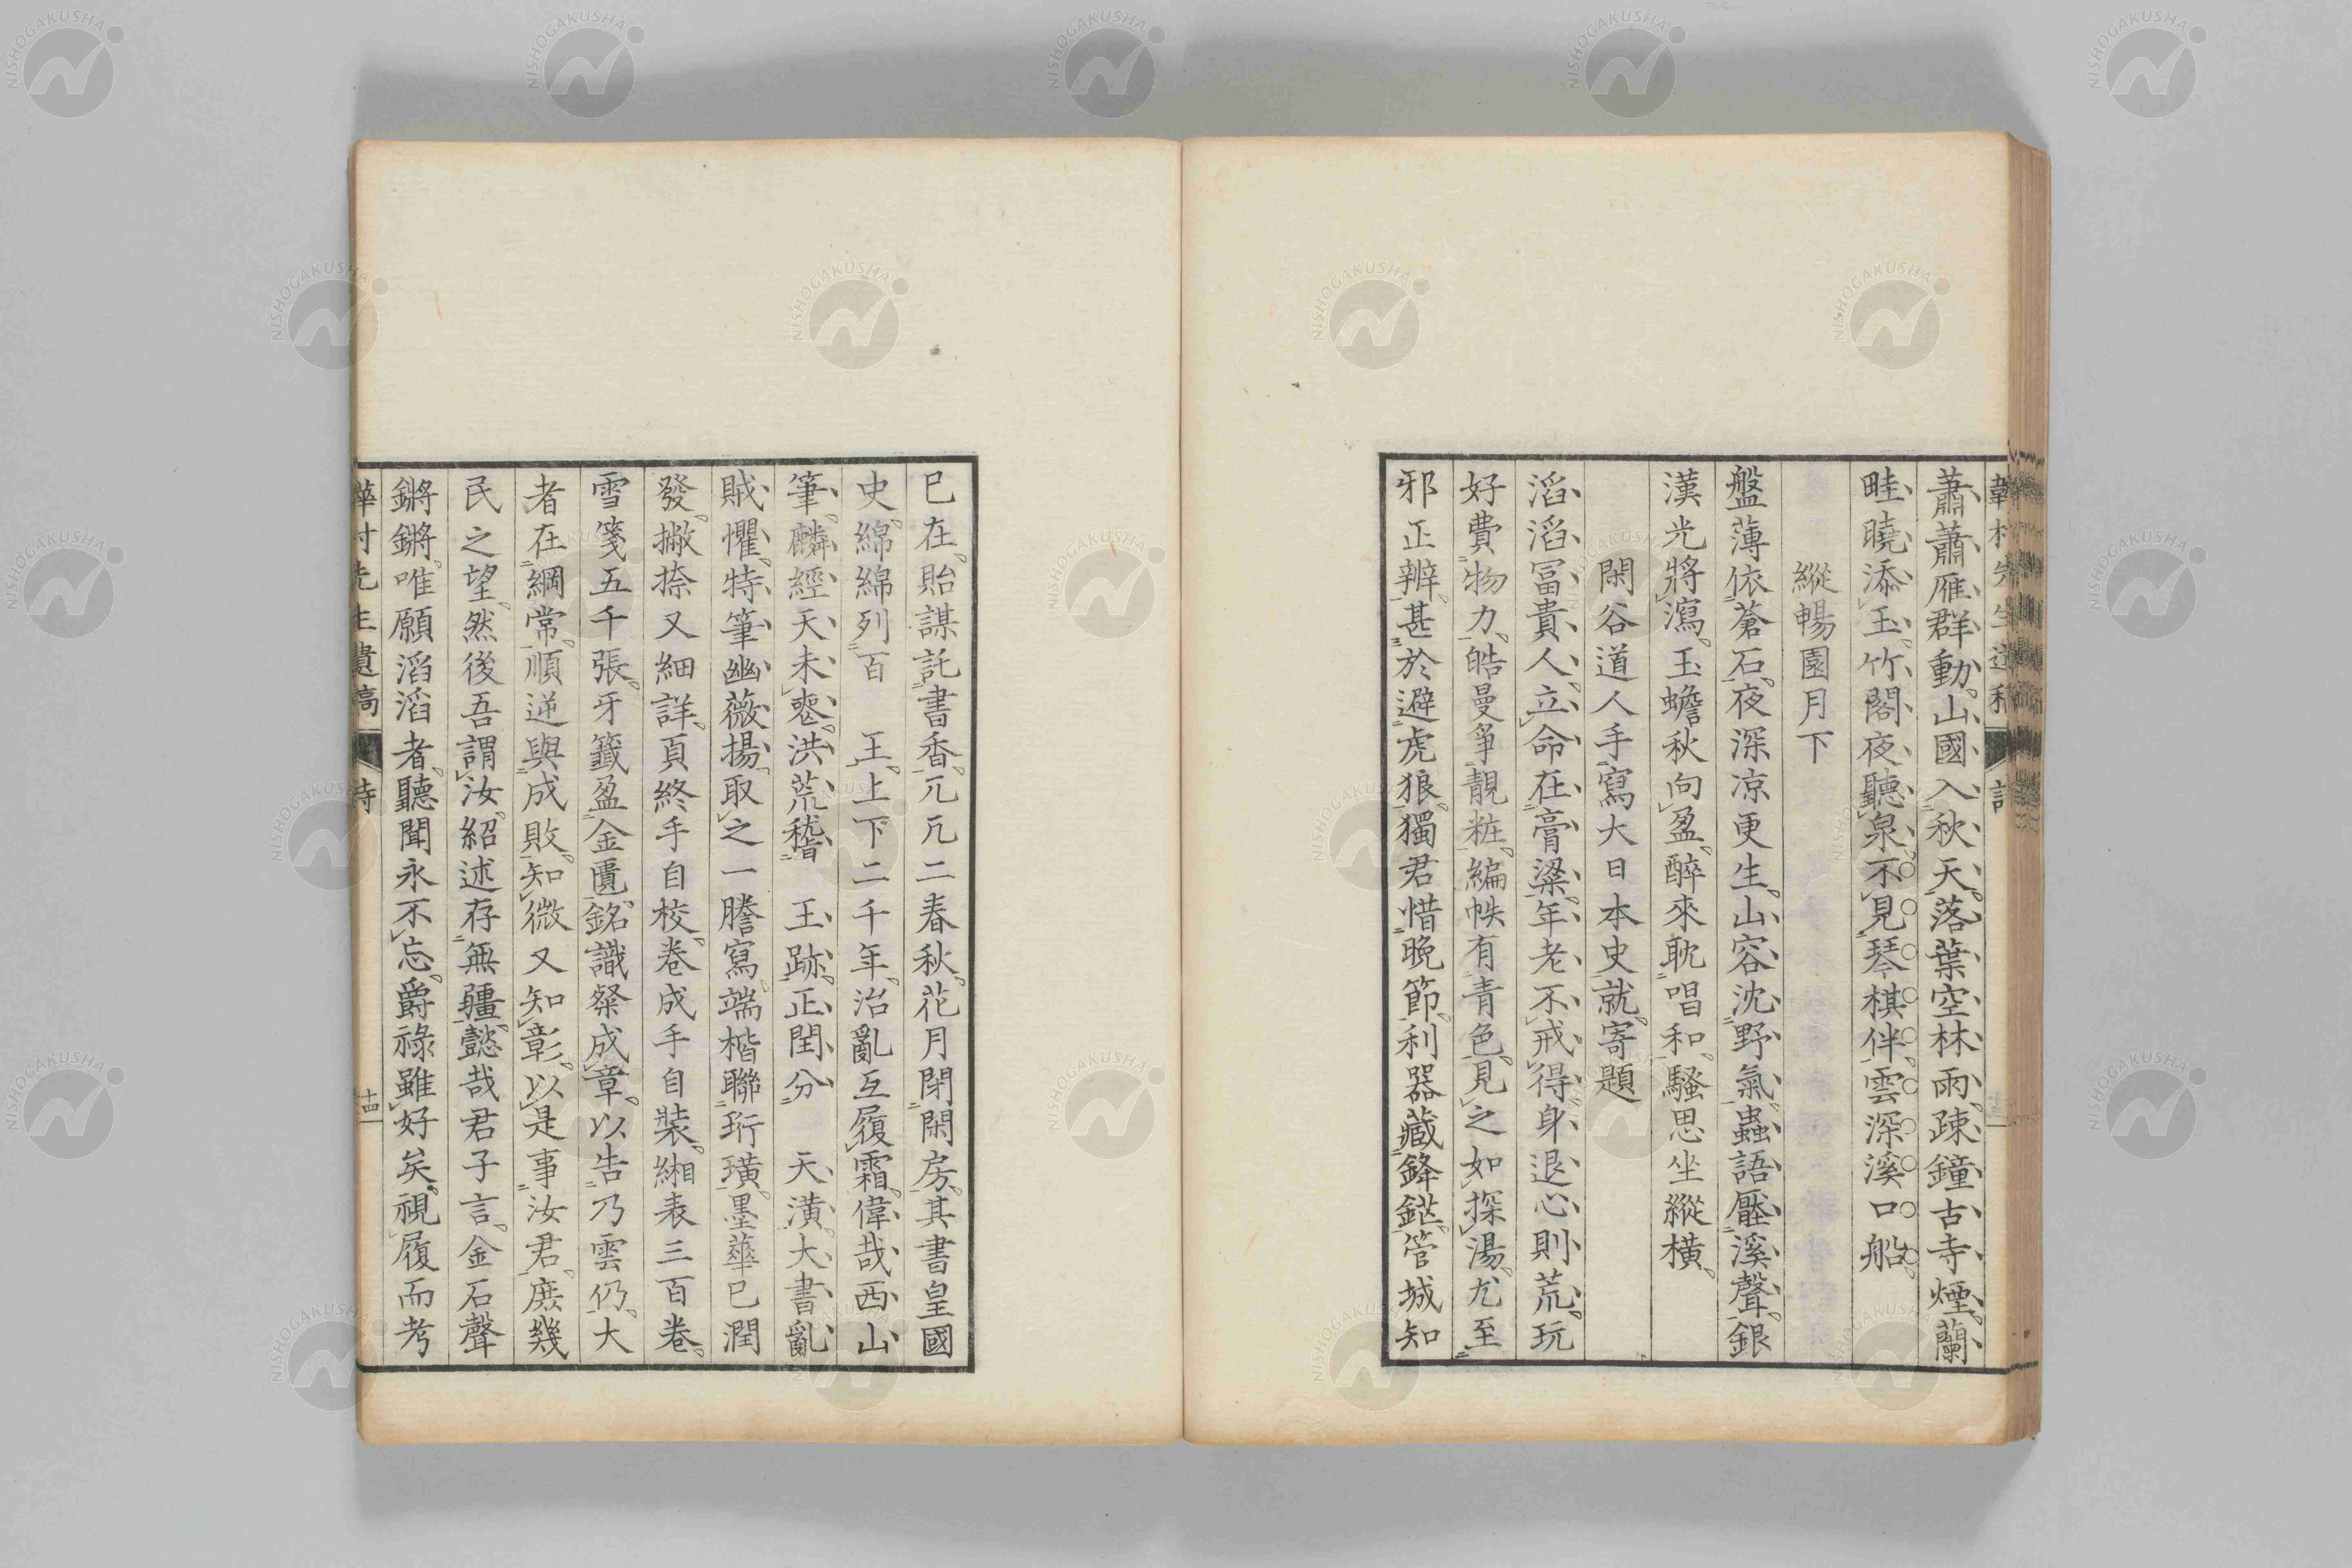 蕭蕭雁群動山國入秋天落葉空林雨疎鐘古寺煙蘭
畦曉添玉竹閣夜聽泉不見琴棋伴雲深溪口船
縱暢園月下
盤薄依蒼石夜深凉更生山容沈野氣蟲語壓溪聲銀
漢光將瀉玉蟾秋向盈醉來耽唱和騷思坐縱橫
閑谷道人手寫大日本史就寄題
滔滔冨貴人立命在膏粱年老不戒得身退心則荒玩
好費物力皓曼爭靚粧編帙有青色見之如探湯尤至
邪正辨甚於避虎狼獨君惜晚節利器藏鋒鋩管城知
已在貽謀託書香兀兀二春秋花月閉閑房其書皇國
史綿綿列百 王上下二千年治亂互履霜偉哉西山
筆麟經天未喪洪荒稽 王跡正閏分 天潢大書亂
賊懼特筆幽薇揚取之一謄寫端楷聯珩璜墨華已潤
發撇捺又細詳頁終手自校卷成手自裝緗表三百卷
雪箋五千張牙籤盈金匱銘識粲成章以告乃雲仍大
者在綱常順逆與成敗知微又知彰以是事汝君庶幾
民之望然後吾謂汝紹述存無疆懿哉君子言金石聲
鏘鏘唯願滔滔者聽聞永不忘爵祿雖好矣視履而考
先生遺稿 詩 十四
NISHOGAKUSHA